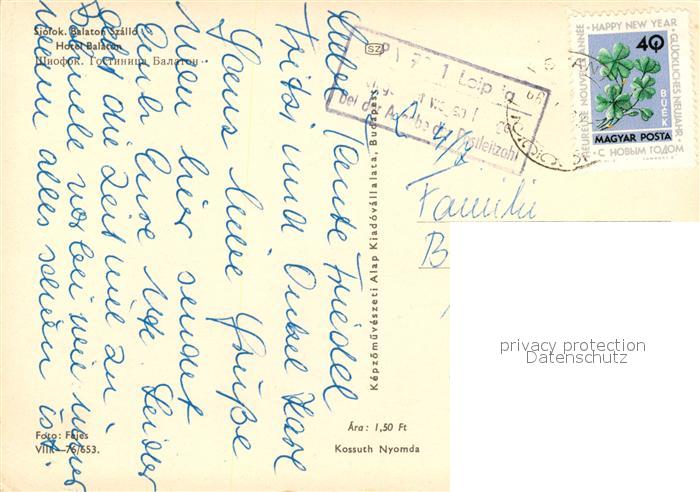 Siófok. Balaton Szálló
Hotel Balaton
Шиофок. Гостиница Балатон
Liebe Tante Friedel
Fritzi und Onkel Karl
Hans. Liebe Grüße
von hier sendet
Euch Eure Leider
geht die Zeit viel zu
schnell vorbei wie immer
wenn alles schön ist.
Foto: Fejes
VIII.-76/653.
SZ
Képzőművészeti Alap Kiadóvállalata, Budapest
Ára: 1,50 Ft
Kossuth Nyomda
Leipzig
bei der Angabe der Postleitzahl
Familie
B
HAPPY NEW YEAR
GLÜCKLICHES NEUJAHR
HEUREUSE NOUVELLE ANNÉE
С НОВЫМ ГОДОМ
40
BÚÉK
MAGYAR POSTA
privacy protection
Datenschutz